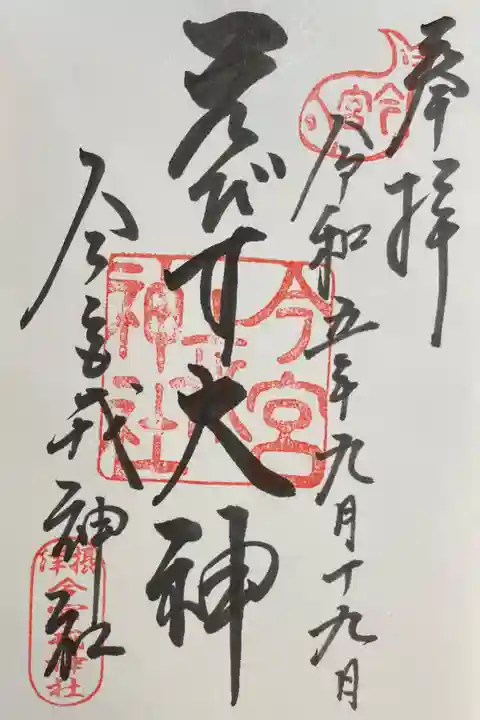 奉拝
令和五年九月十九日
ゑびす大神
今宮戎神社
今宮
今宮戎神社
摂津